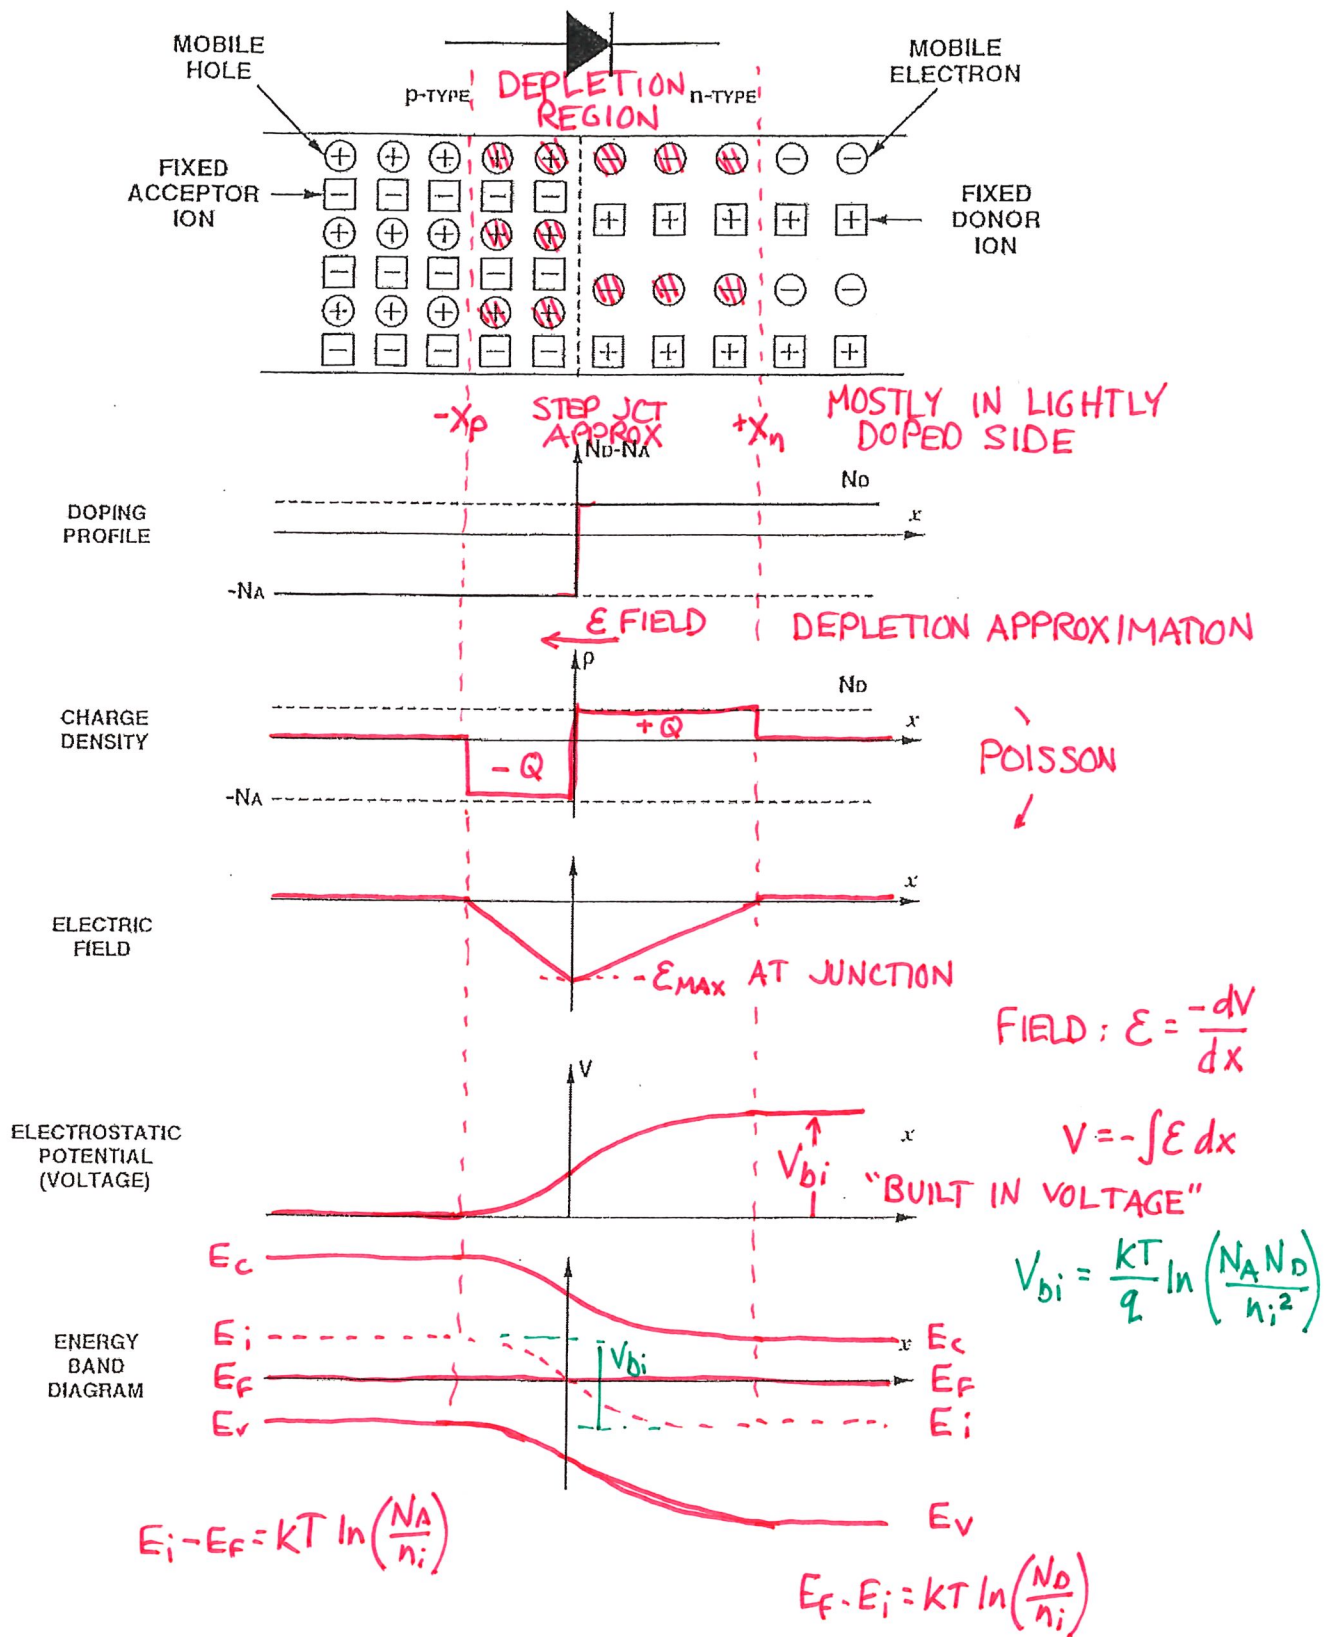 MOBILE
HOLE
MOBILE
ELECTRON
p-TYPE
DEPLETION
REGION
n-TYPE
FIXED
ACCEPTOR
ION
FIXED
DONOR
ION
-Xp
STEP JCT
APPROX
+Xn
MOSTLY IN LIGHTLY
DOPED SIDE
ND-NA
ND
DOPING
PROFILE
x
-NA
ε FIELD
DEPLETION APPROXIMATION
ρ
ND
CHARGE
DENSITY
+Q
x
-Q
POISSON
-NA
x
ELECTRIC
FIELD
εMAX AT JUNCTION
FIELD: ε = -dV/dx
V
ELECTROSTATIC
POTENTIAL
(VOLTAGE)
x
V = -∫ε dx
Vbi
"BUILT IN VOLTAGE"
Ec
Vbi = kT/q ln(NA ND/ni²)
Ei
x
Ec
ENERGY
BAND
DIAGRAM
Vbi
EF
EF
Ev
Ei
Ev
Ei - EF = kT ln(NA/ni)
EF - Ei = kT ln(ND/ni)